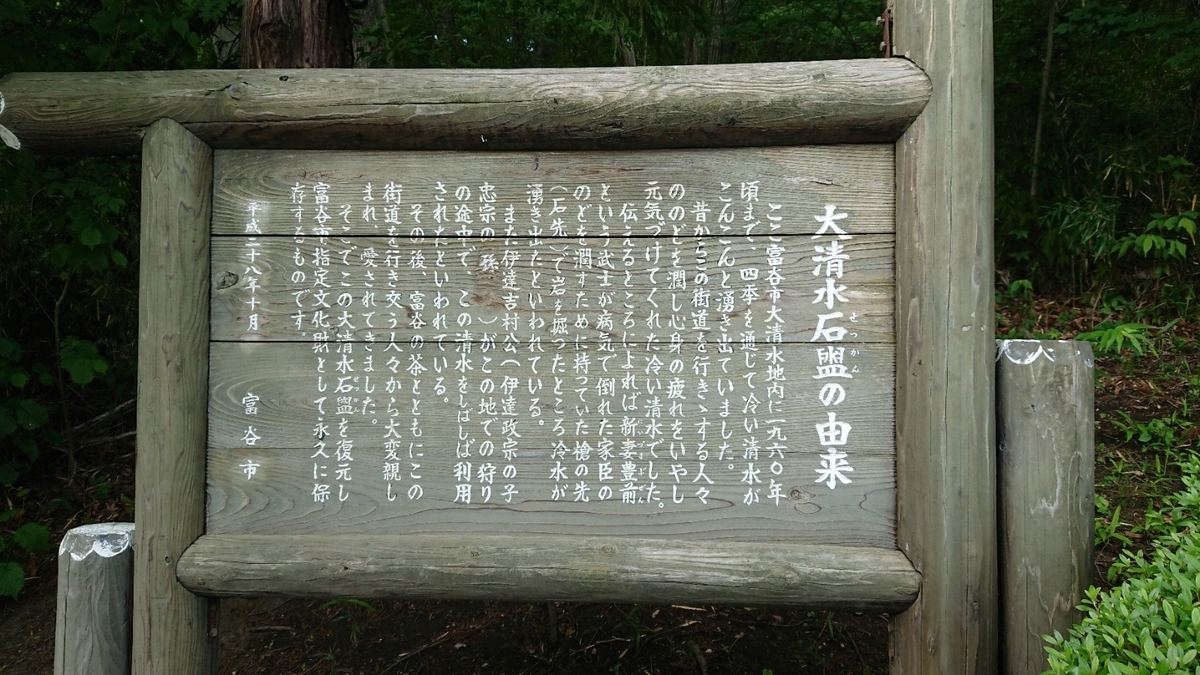 大清水石盥の由来
せつかん
ここ富谷市大清水地内に一九六〇年
頃まで、四季を通じて冷い清水が
こんこんと湧き出ていました。
昔からこの街道を行きゝする人々
ののどを潤し心身の疲れをいやし
元気づけてくれた冷い清水でした。
伝えるところによれば新妻豊前
という武士が病気で倒れた家臣の
のどを潤すために持っていた槍の先
(石先)で岩を掘ったところ冷水が
湧き出たといわれている。
また伊達吉村公(伊達政宗の子
忠宗の孫)がこの地での狩り
の途中で、この清水をしばしば利用
されたといわれている。
その後、富谷の茶とともにこの
街道を行き交う人々から大変親し
まれ、愛されてきました。
そこでこの大清水石盥を復元し
せつかん
富谷市指定文化財として永久に保
存するものです。
平成二十八年十月 富谷市